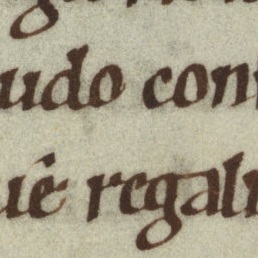 udo con
uê regalu